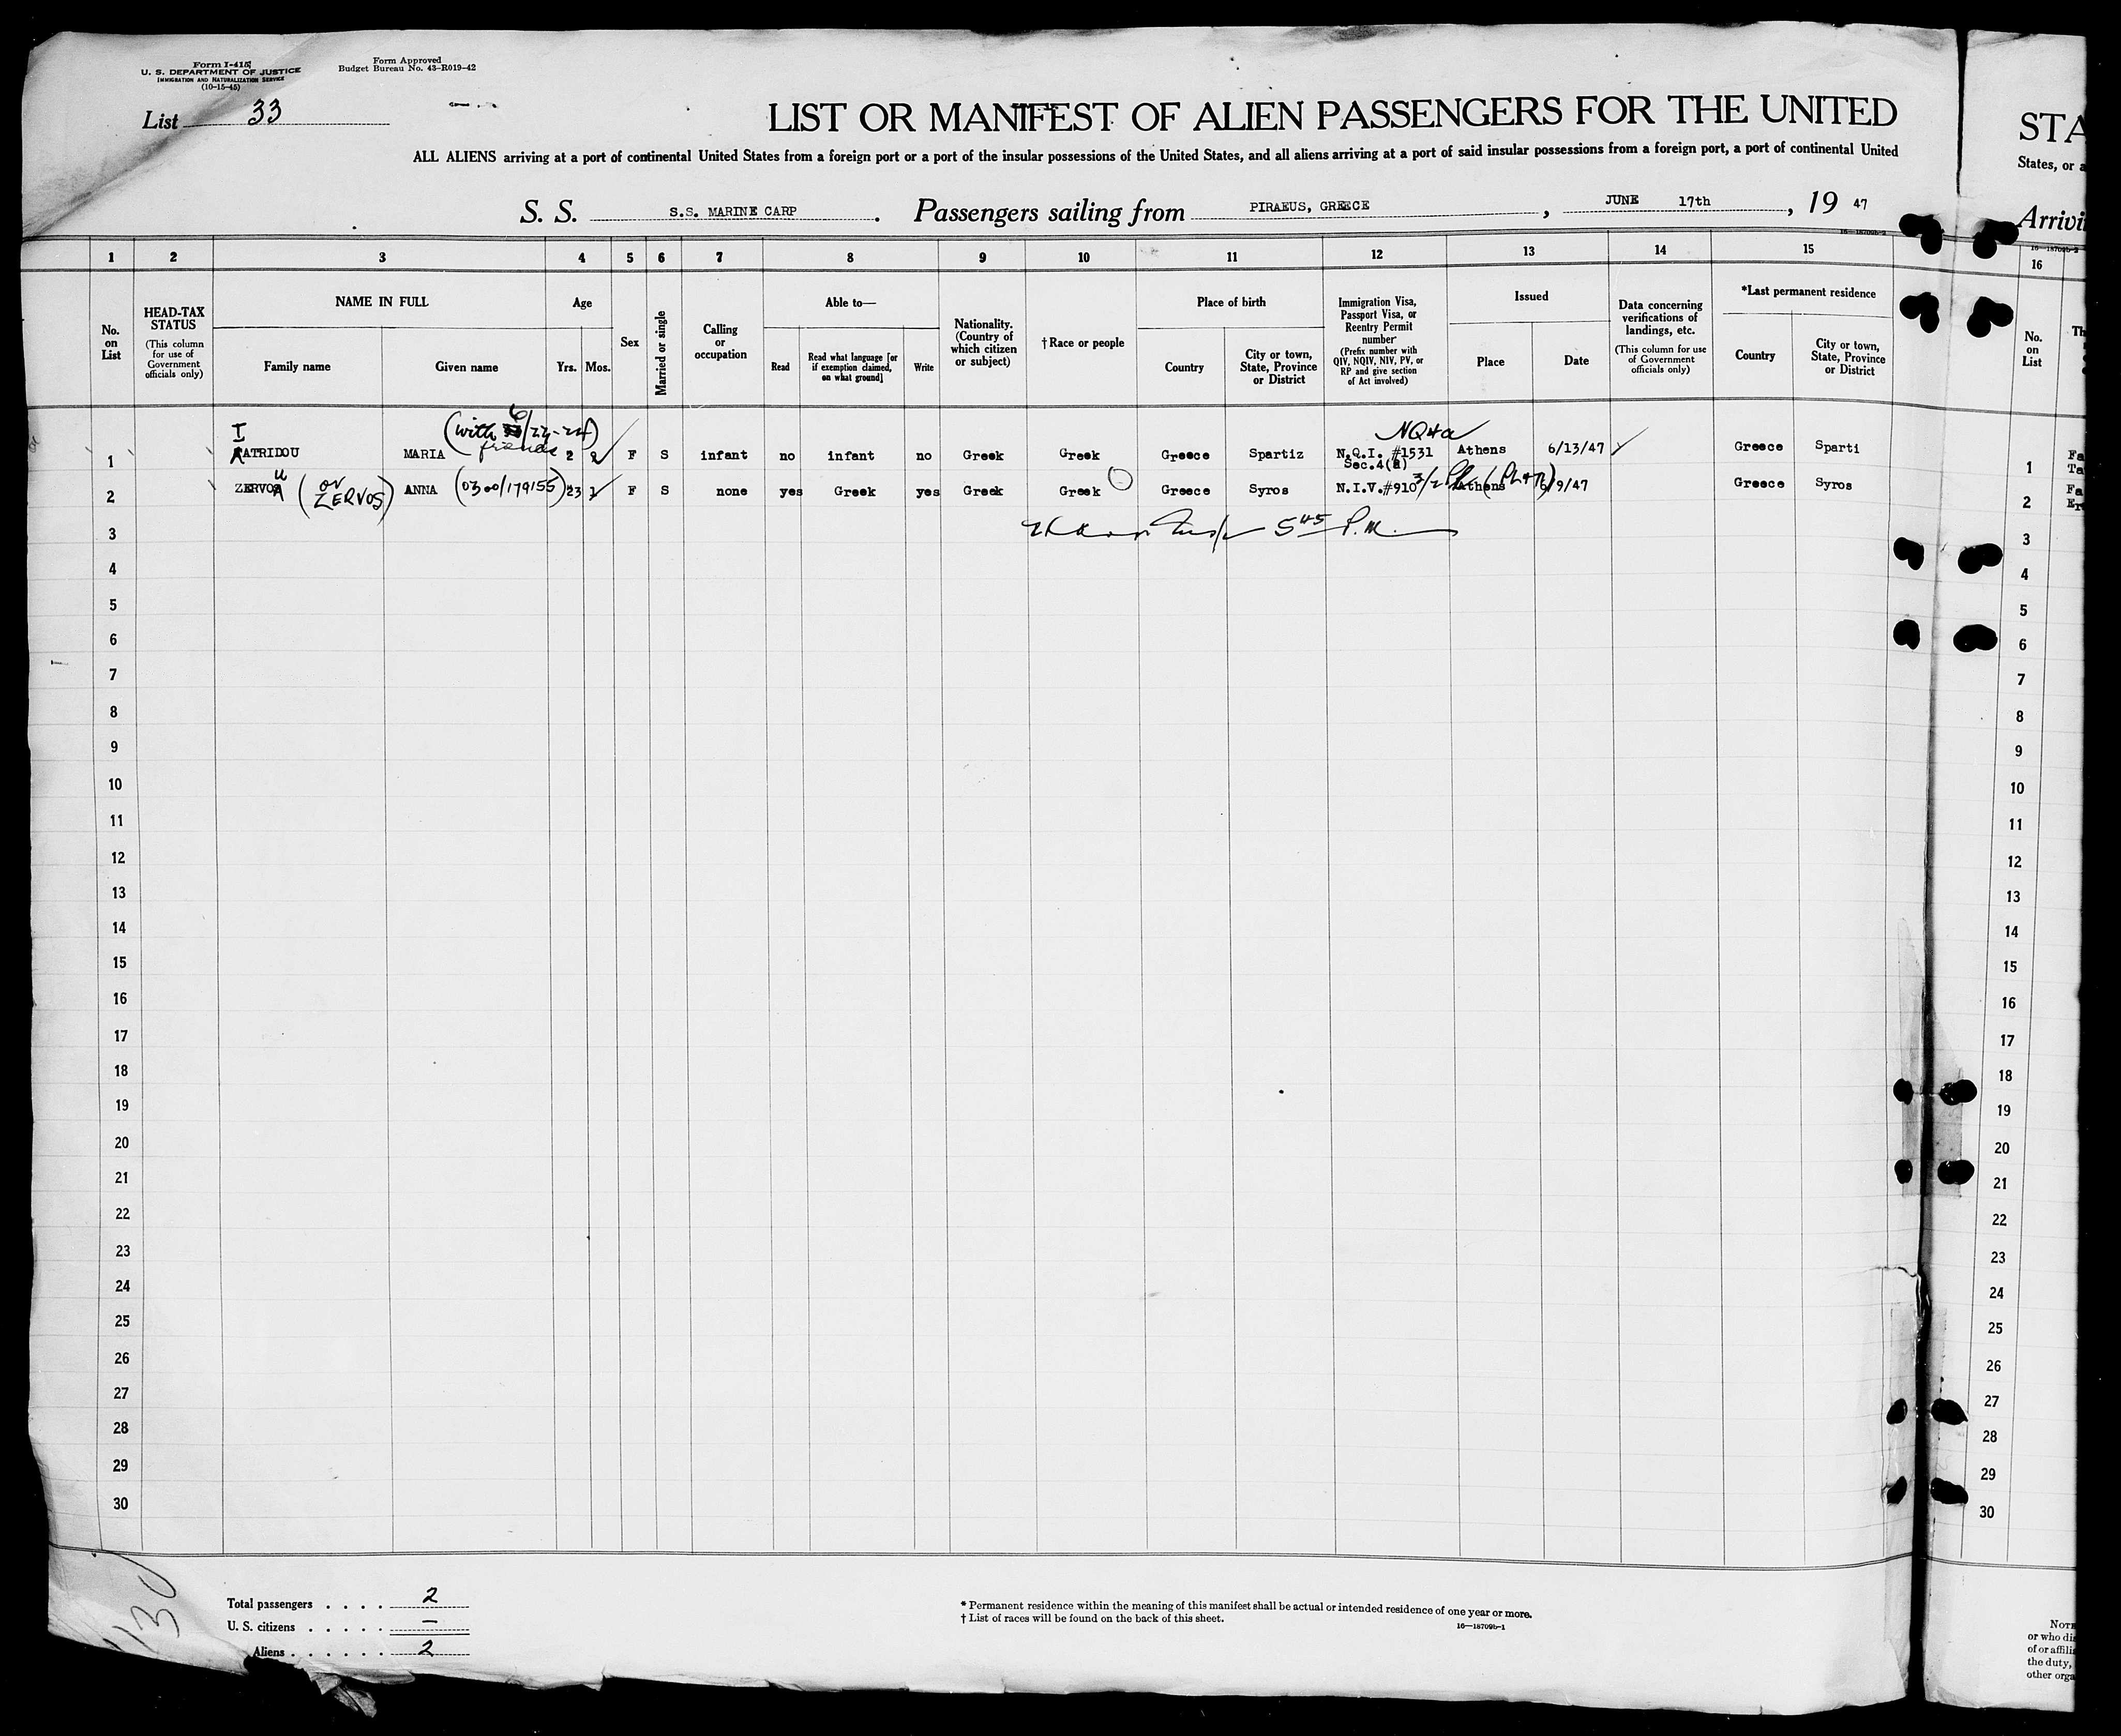 Form I-415
U. S. DEPARTMENT OF JUSTICE
IMMIGRATION AND NATURALIZATION SERVICE
(10-15-45)
Form Approved
Budget Bureau No. 43-R019-42
List 33
LIST OR MANIFEST OF ALIEN PASSENGERS FOR THE UNITED
ALL ALIENS arriving at a port of continental United States from a foreign port or a port of the insular possessions of the United States, and all aliens arriving at a port of said insular possessions from a foreign port, a port of continental United
S. S. S.S. MARINE CARP . Passengers sailing from PIRAEUS, GREECE , JUNE 17th , 19 47
16—18709b-2
1 2 3 4 5 6 7 8 9 10 11 12 13 14 15
No. on List
HEAD-TAX STATUS
(This column for use of Government officials only)
NAME IN FULL
Family name
Given name
Age
Yrs. Mos.
Sex
Married or single
Calling or occupation
Able to—
Read
Read what language [or if exemption claimed, on what ground]
Write
Nationality. (Country of which citizen or subject)
†Race or people
Place of birth
Country
City or town, State, Province or District
Immigration Visa, Passport Visa, or Reentry Permit number
(Prefix number with QIV, NQIV, NIV, PV, or RP and give section of Act involved)
Issued
Place
Date
Data concerning verifications of landings, etc.
(This column for use of Government officials only)
*Last permanent residence
Country
City or town, State, Province or District
I
(with 6/22-24)
friends
NQ4a
1 ATRIDOU MARIA 2 2 F S infant no infant no Greek Greek Greece Spartiz N.Q.I. #1531 Athens 6/13/47 Greece Sparti
Sec.4(a)
2 ZERVOU (or ZERVOS) ANNA (0300/179155) 23 F S none yes Greek yes Greek Greek Greece Syros N.I.V.#910 3/2 Athens 6/9/47 Greece Syros
3 5 45 P.M.
4
5
6
7
8
9
10
11
12
13
14
15
16
17
18
19
20
21
22
23
24
25
26
27
28
29
30
Total passengers . . . . 2
U. S. citizens . . . . . —
Aliens . . . . . . 2
130
* Permanent residence within the meaning of this manifest shall be actual or intended residence of one year or more.
† List of races will be found on the back of this sheet.
16—18709b-1
STA
States, or a
Arrivi
16—18709b-2
16
No. on List
Th
1 Fa
Ta
2 Fa
Er
3
4
5
6
7
8
9
10
11
12
13
14
15
16
17
18
19
20
21
22
23
24
25
26
27
28
29
30
NOTE
or who di
of or affili
the duty,
other orga